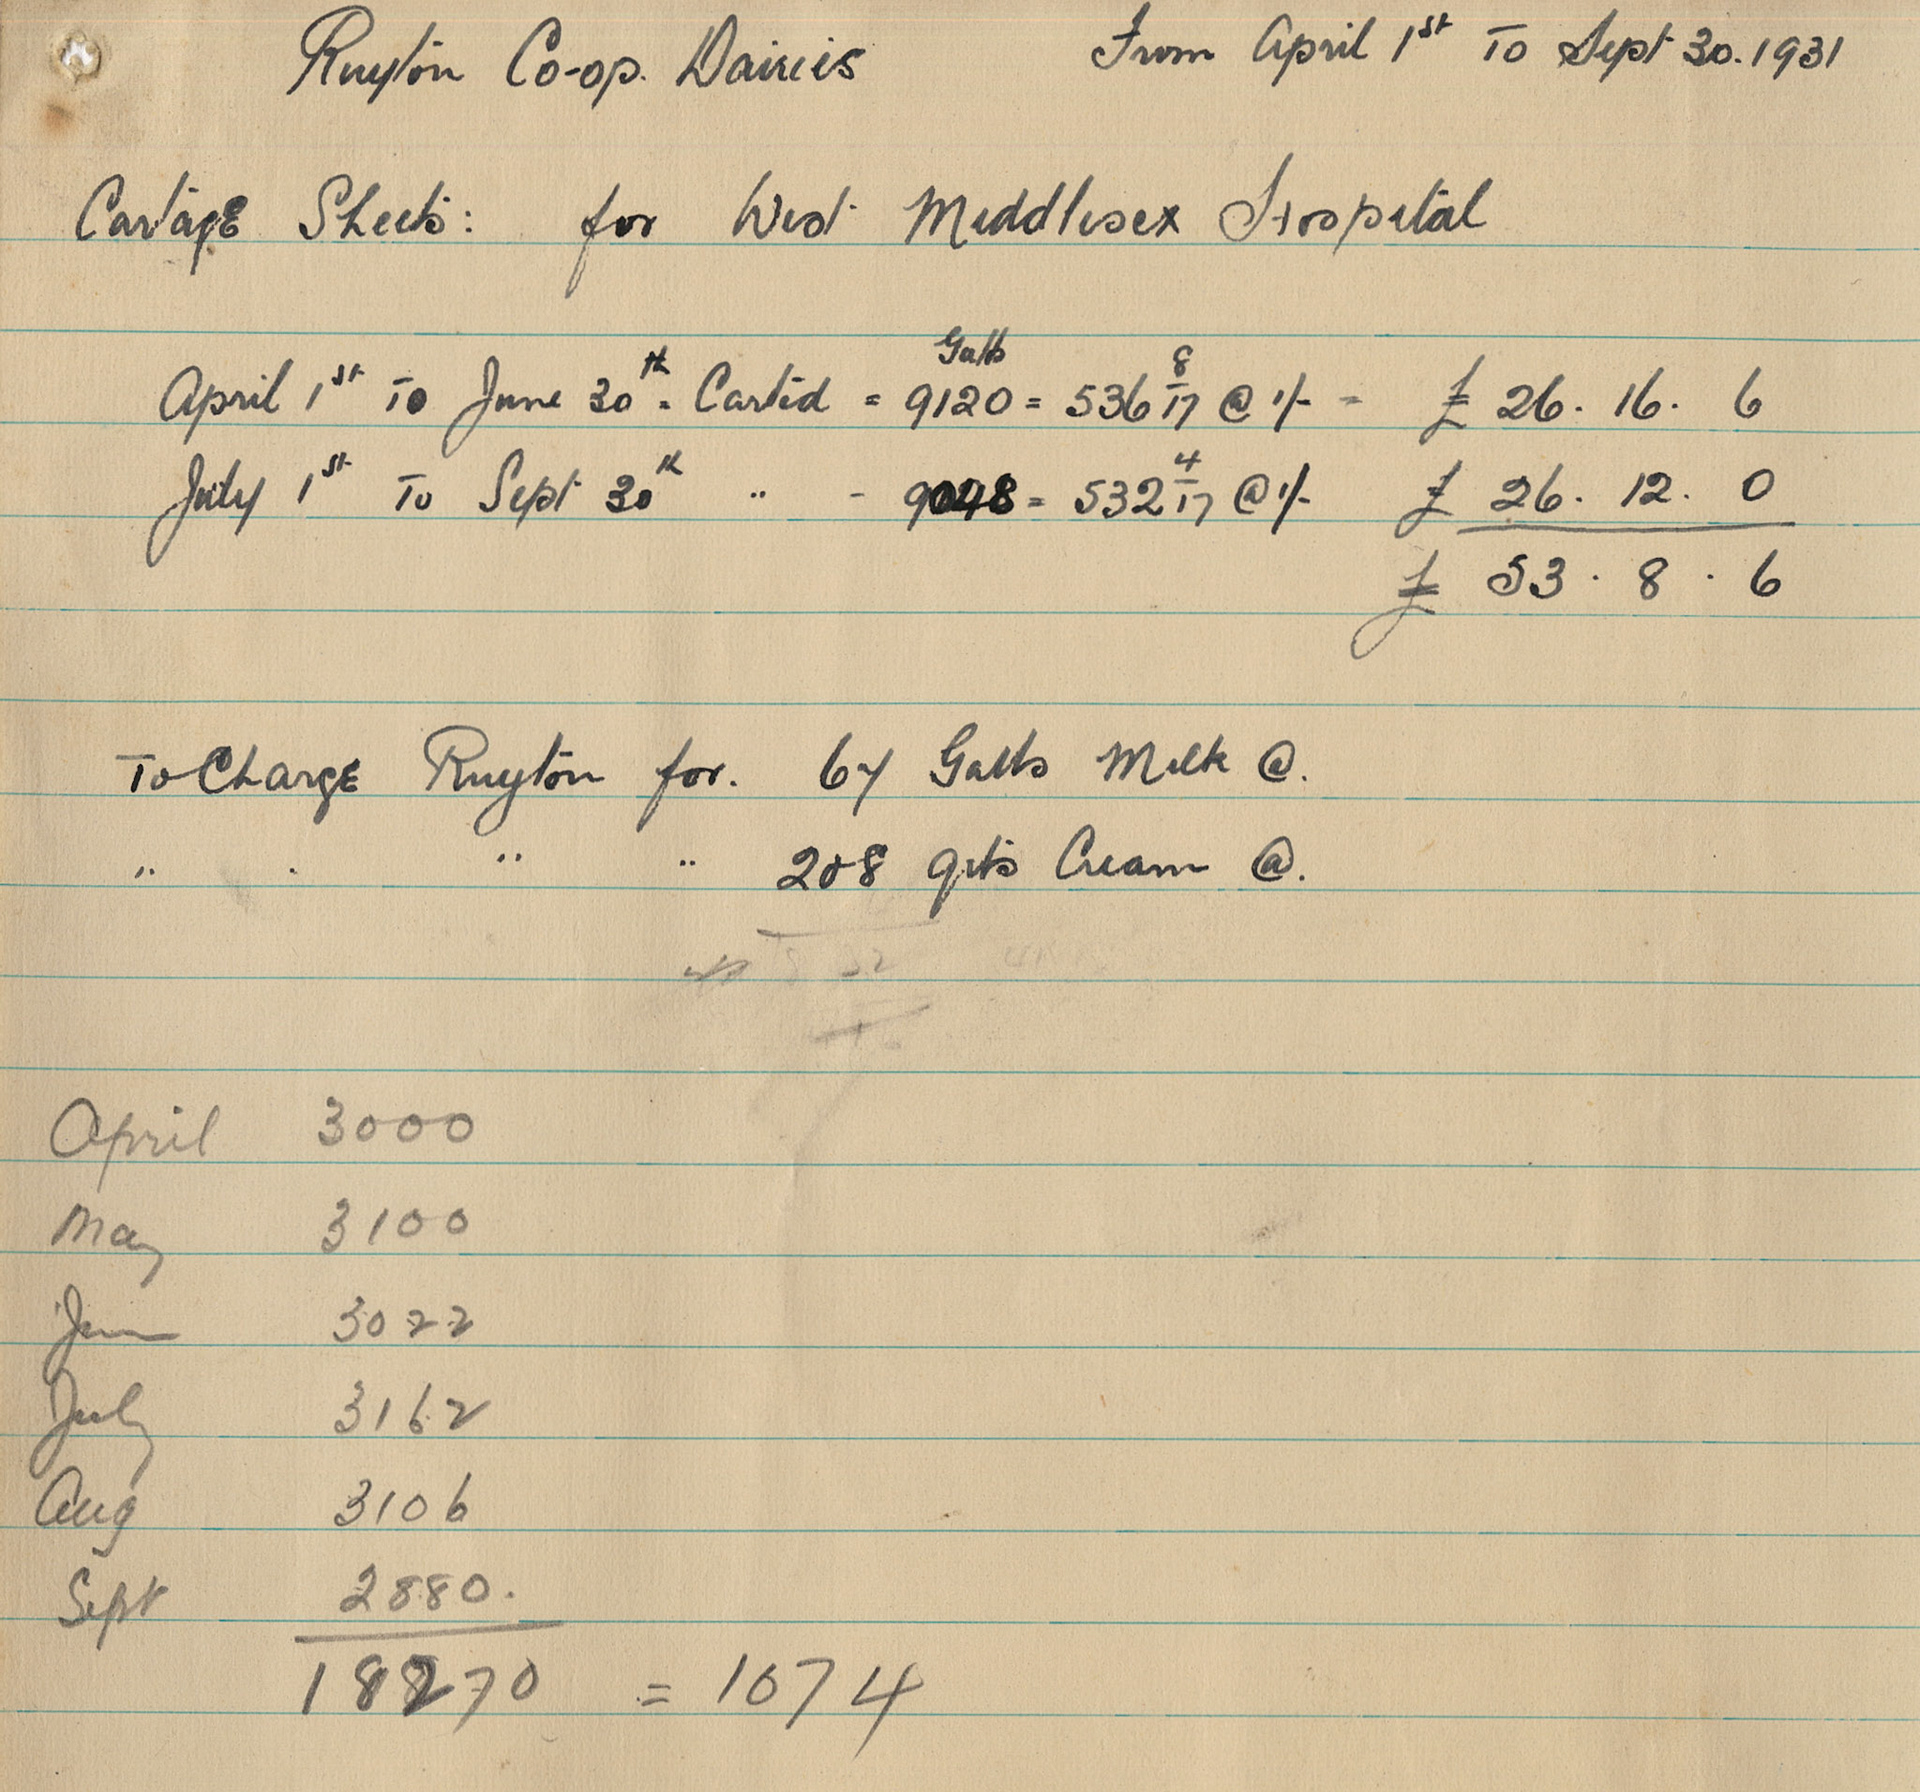 Ruyton Co-op. Dairies From April 1st To Sept 30. 1931
Cartage Sheets: for West Middlesex Hospital
Galls
April 1st To June 30th. Carted = 9120 = 536 8/17 @ 1/- = £ 26. 16. 6
July 1st To Sept 30th " - 9048 = 532 4/17 @ 1/- £ 26. 12. 0
£ 53. 8. 6
To Charge Ruyton for. 64 Galls Milk @.
" . " " 208 qrts Cream @.
April 3000
May 3100
June 3022
July 3162
Aug 3106
Sept 2880.
18270 = 1074